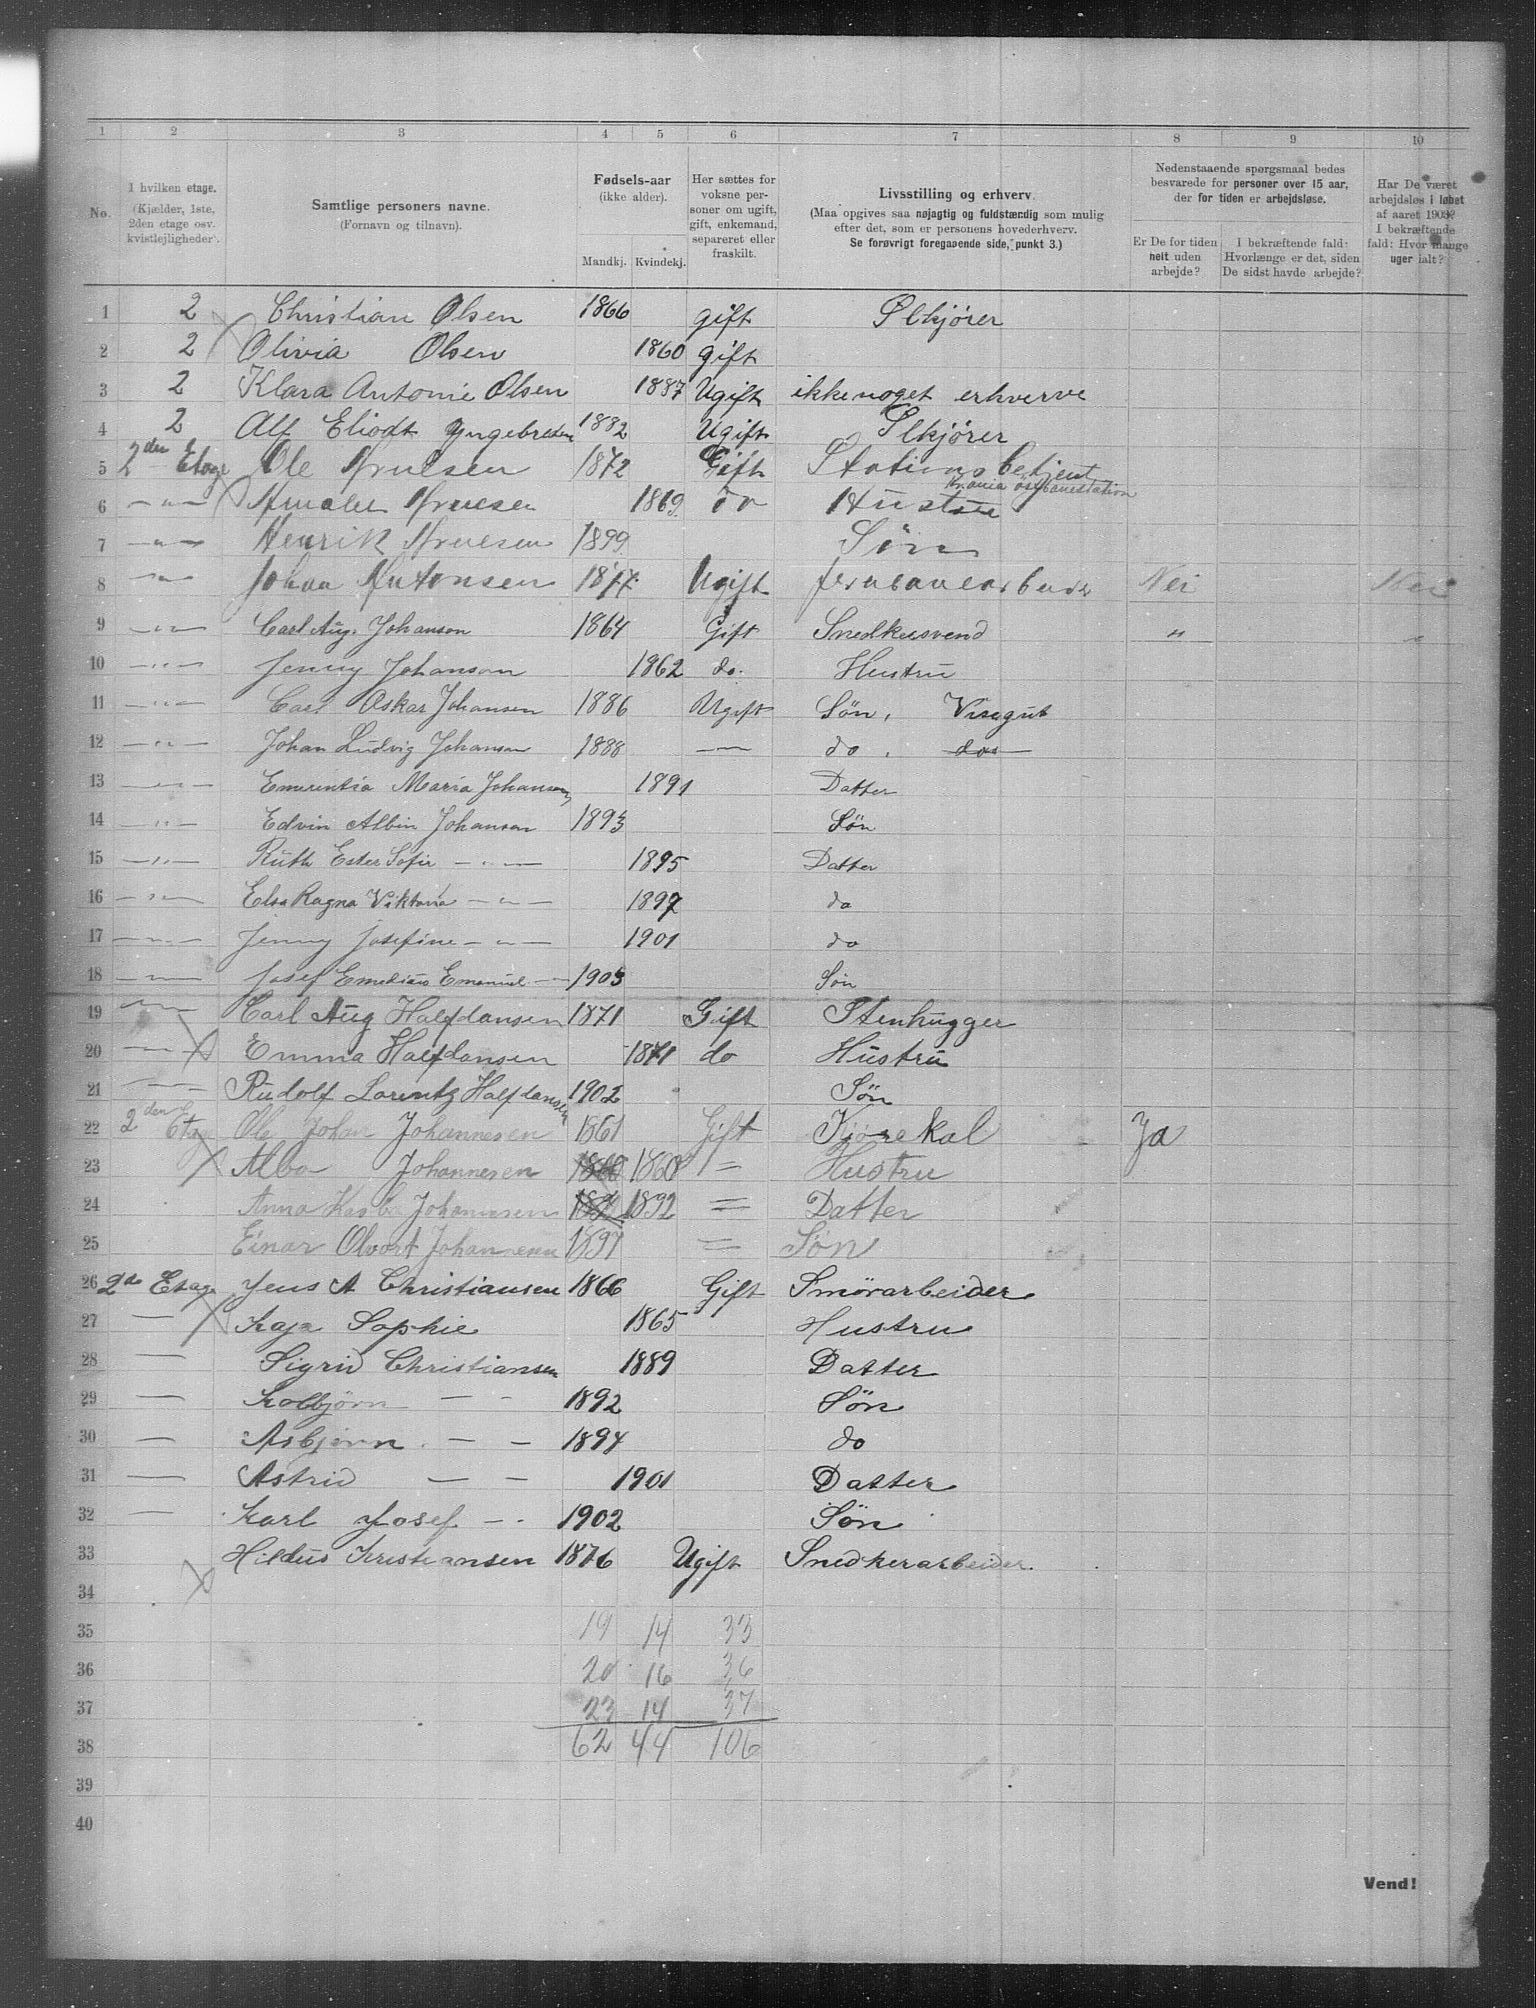 1 2 3 4 5 6 7 8 9 10
No.
I hvilken etage. (Kjælder, 1ste, 2den etage osv. kvistlejligheder).
Samtlige personers navne. (Fornavn og tilnavn).
Fødsels-aar (ikke alder). Mandkj. Kvindekj.
Her sættes for voksne personer om ugift, gift, enkemand, separeret eller fraskilt.
Livsstilling og erhverv. (Maa opgives saa nøjagtig og fuldstændig som mulig efter det, som er personens hovederhverv. Se forøvrigt foregaaende side, punkt 3.)
Nedenstaaende spørgsmaal bedes besvarede for personer over 15 aar, der for tiden er arbejdsløse.
Er De for tiden helt uden arbejde?
I bekræftende fald: Hvorlænge er det, siden De sidst havde arbejde?
Har De været arbejdsløs i løbet af aaret 1903? I bekræftende fald: Hvor mange uger ialt?
1 2 Christian Olsen 1866 gift Ølkjører
2 2 Olivia Olsen 1860 gift
3 2 Klara Antonie Olsen 1887 Ugift ikke noget erhverve
4 2 Alf Eliodt Yngebretsen 1882 Ugift Ølkjører
5 2den Etage Ole 1872 Gift Stationsbetjent
Kr.ania östbanestation
6 — " — 1869 do Hustru
7 — " — Henrik 1899 Søn
8 — " — Johan Antonsen 1877 Ugift jernbanearbeider Nei Nei
9 — " — Carl Aug. Johanson 1864 Gift Snedkersvend " "
10 — " — Jenny Johanson 1862 do. Hustru
11 — " — Carl Oskar Johansen 1886 Ugift Søn, Visegut
12 — " — Johan Ludvig Johanson 1888 — do, do
13 — " — Emerentia Maria Johansen 1891 Datter
14 — " — Edvin Albin Johanson 1893 Søn
15 — " — Ruth Ester Sofie — " — 1895 Datter
16 — " — Elsa Ragna Viktoria — " — 1897 do
17 — " — Jenny Josefine — " — 1901 do
18 — " — Josef Emelius Emanuel — 1903 Søn
19 — " — Carl Aug Halfdansen 1871 Gift Stenhugger
20 — " — Emma Halfdansen 1871 do Hustru
21 — Rudolf Lorentz Halfdansen 1902 Søn
22 2den Etage Ole Johan Johannesen 1861 Gift Kjøre Kal Ja
23 Alba Johannesen 1860 1860 = Hustru
24 Anna Johannesen 1892 = Datter
25 Einar Olvart Johannesen 1897 = Søn
26 2de Etage Jens A Christiansen 1866 Gift Smörarbeider
27 — Kaja Sophie 1865 Hustru
28 — Sigrid Christiansen 1889 Datter
29 — Kolbjörn — - 1892 Søn
30 — Asbjørn — — 1894 do
31 — Astrid — — 1901 Datter
32 — Karl Josef — - 1902 Søn
33 Hildus Kristiansen 1876 Ugift Snedkerarbeider.
34
35 19 14 33
36 20 16 36
37 23 14 37
38 62 44 106
39
40
Vend!